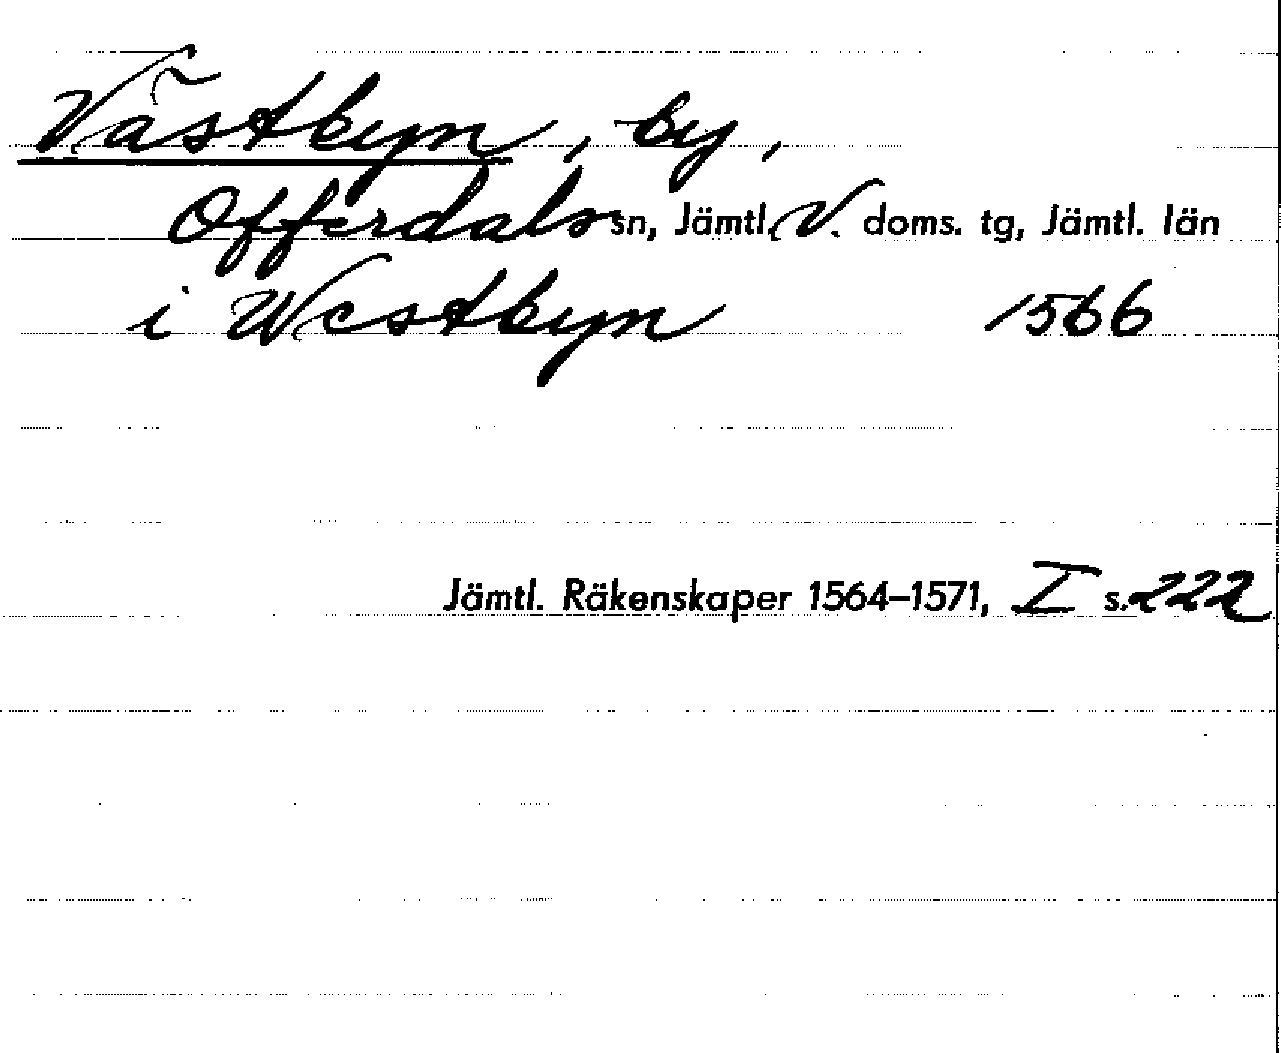 Västbyn, by,
Offerdals sn, Jämtl. V. doms. tg, Jämtl. län
i Westbyn 1566
Jämtl. Räkenskaper 1564–1571, I s. 222